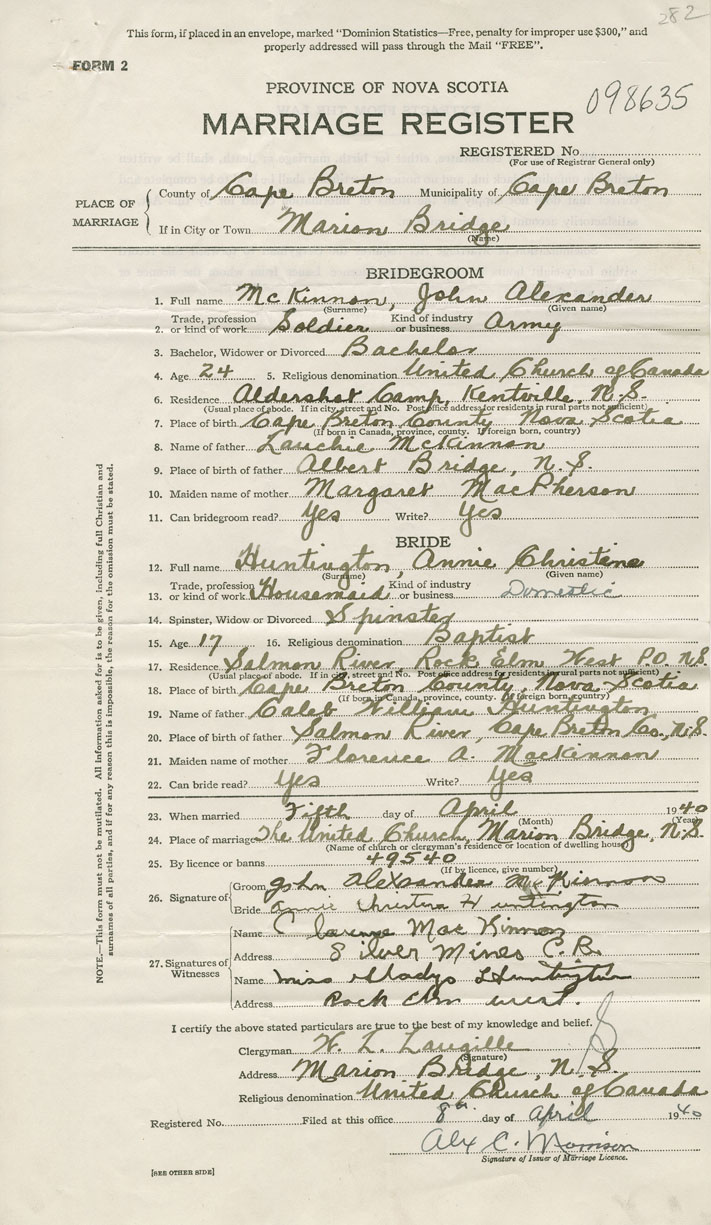 282
This form, if placed in an envelope, marked "Dominion Statistics—Free, penalty for improper use $300," and
properly addressed will pass through the Mail "FREE".
FORM 2
PROVINCE OF NOVA SCOTIA
098635
MARRIAGE REGISTER
REGISTERED No.
(For use of Registrar General only)
PLACE OF MARRIAGE
County of Cape Breton Municipality of Cape Breton
If in City or Town Marion Bridge
(Name)
BRIDEGROOM
1. Full name McKinnon, John Alexander
(Surname) (Given name)
2. Trade, profession or kind of work Soldier Kind of industry or business Army
3. Bachelor, Widower or Divorced Bachelor
4. Age 24 5. Religious denomination United Church of Canada
6. Residence Aldershot Camp, Kentville, N.S.
(Usual place of abode. If in city, street and No. Post office address for residents in rural parts not sufficient)
7. Place of birth Cape Breton County, Nova Scotia
(If born in Canada, province, county. If foreign born, country)
8. Name of father Lauchie McKinnon
9. Place of birth of father Albert Bridge, N.S.
10. Maiden name of mother Margaret MacPherson
11. Can bridegroom read? Yes Write? Yes
BRIDE
12. Full name Huntington, Annie Christena
(Surname) (Given name)
13. Trade, profession or kind of work Housemaid Kind of industry or business Domestic
14. Spinster, Widow or Divorced Spinster
15. Age 17 16. Religious denomination Baptist
17. Residence Salmon River, Rock Elm West P.O. N.S.
(Usual place of abode. If in city, street and No. Post office address for residents in rural parts not sufficient)
18. Place of birth Cape Breton County, Nova Scotia
(If born in Canada, province, county. If foreign born, country)
19. Name of father Caleb William Huntington
20. Place of birth of father Salmon River, Cape Breton Co., N.S.
21. Maiden name of mother Florence A. MacKinnon
22. Can bride read? Yes Write? Yes
23. When married Fifth day of April 1940
(Month) (Year)
24. Place of marriage The United Church, Marion Bridge, N.S.
(Name of church or clergyman's residence or location of dwelling house)
25. By licence or banns 49540
(If by licence, give number)
26. Signature of
Groom John Alexander McKinnon
Bride Annie Christena Huntington
27. Signatures of Witnesses
Name Clarence MacKinnon
Address Silver Mines C.B.
Name Miss Gladys Huntington
Address Rock Elm west.
I certify the above stated particulars are true to the best of my knowledge and belief.
Clergyman W. L. Langille
(Signature)
Address Marion Bridge, N.S.
Religious denomination United Church of Canada
Registered No. Filed at this office 8th day of April 1940
Alex C. Morrison
Signature of Issuer of Marriage Licence.
[SEE OTHER SIDE]
NOTE.—This form must not be mutilated. All information asked for is to be given, including full Christian and
surnames of all parties, and if for any reason this is impossible, the reason for the omission must be stated.